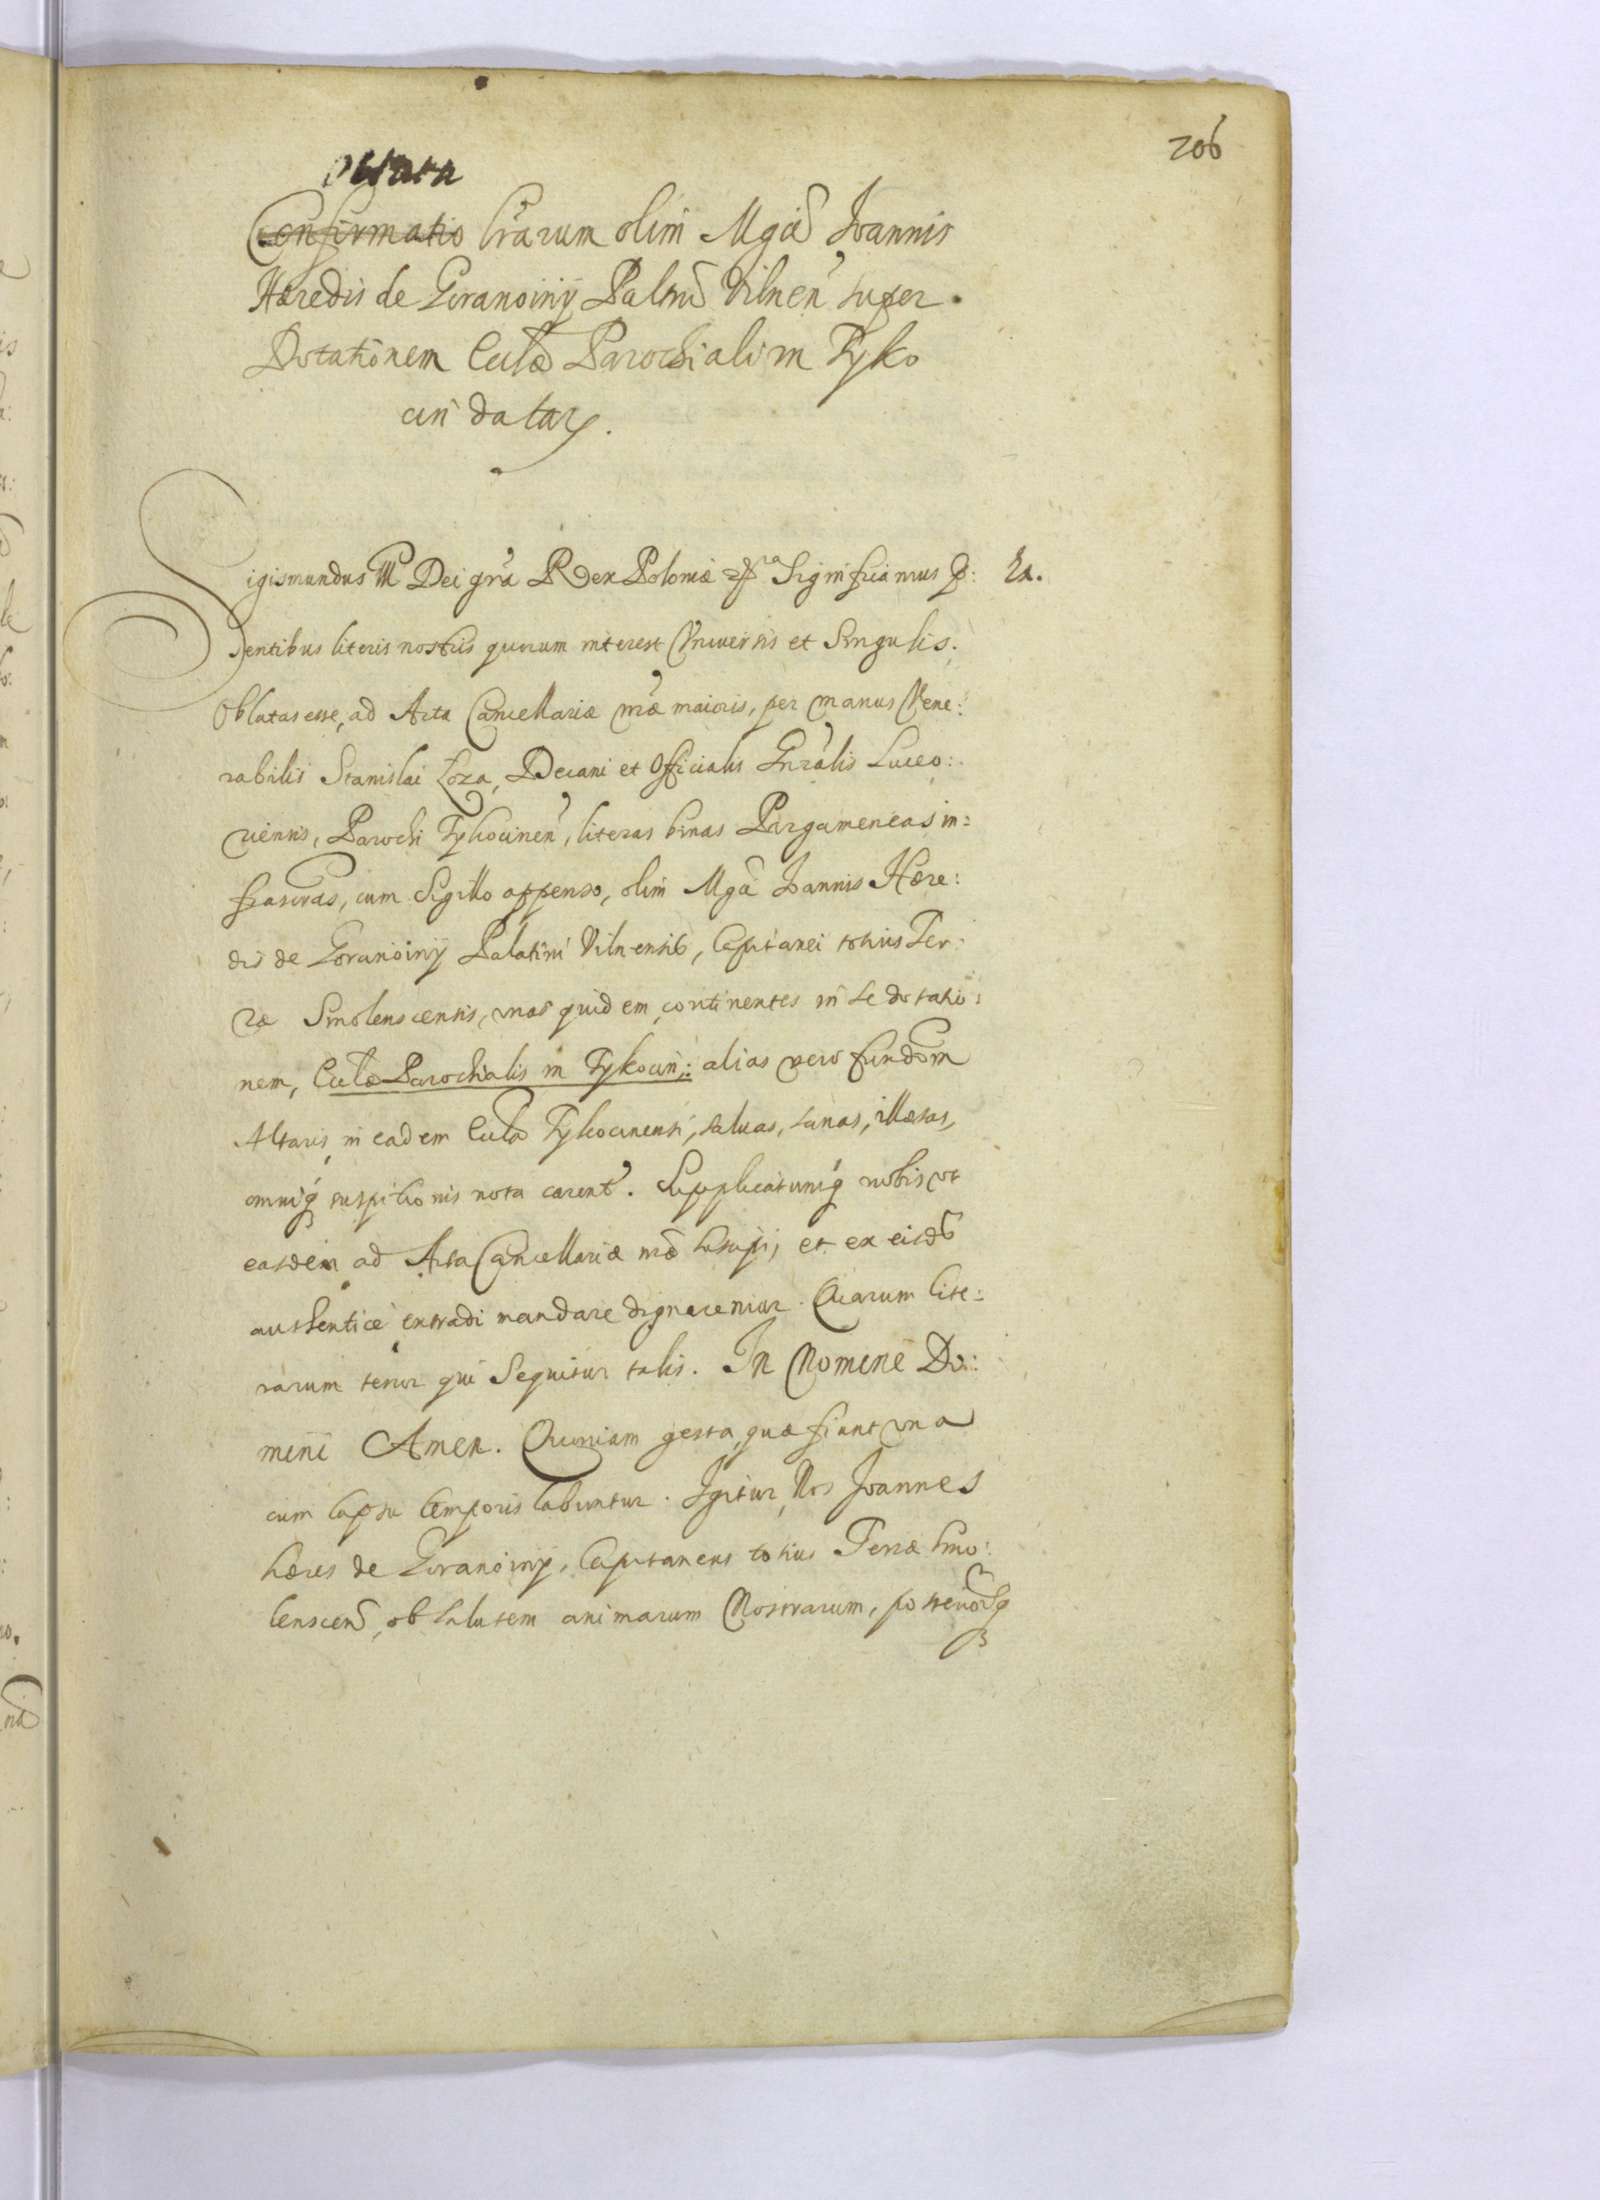 206
Oblata
Confirmatio lrarum olim Mgci Joannis
Hæredis de Goranoiny Paltni Vilnen super
Dotationem Ecclæ Parochiali in Tyko
cin datar.
Sigismundus III Dei gra Rex Poloniæ etc Significamus p: Ex.
sentibus literis nostris quorum interest Vniuersis et Singulis.
Oblatas esse, ad Acta Cancellariæ nræ maioris, per manus Vene:
rabilis Stanislai Loza, Decani et Officialis Gnralis Luceo:
riensis, Parochi Tykocinen, literas binas Pargameneas in:
frascras, cum Sigillo appenso, olim Mgci Joannis Hære:
dis de Goranoiny Palatini Vilnensis, Capitanei totius Ter:
ræ Smolenscensis, vnas quidem continentes in se dotatio:
nem, Ecclæ Parochialis in Tykocin: alias vero fundaom
Altaris, in eadem Eccla Tykocinensi, saluas, sanas, illæsas,
omniq suspitionis nota carent. Supplicatumq nobis vt
easdem ad Acta Cancellariæ nræ suscipi, et ex eisdẽ
authentice extradi mandare dignaremur. Quarum lite:
rarum tenor qui Sequitur talis. In Nomine Do:
mini Amen. Quoniam gesta, quæ fiunt vna
cum lapsu temporis labuntur. Igitur Nos Joannes
hæres de Goranoiny, Capitaneus totius Terræ Smo:
lenscen, ob salutem animarum Nostrarum, posterorq